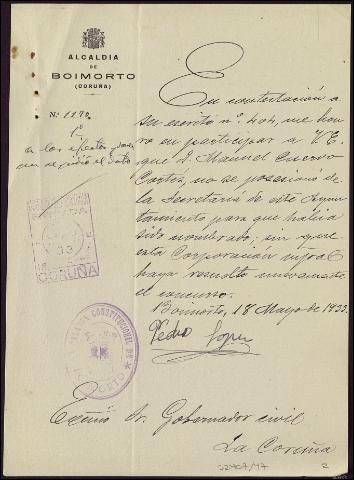 ALCALDIA
DE
BOIMORTO
(CORUÑA)
Nº 1170
En contestación a
su escrito nº 404, me hon
ro en participar a V.E.
que D. Manuel Cuervo
Cortés, no se posesionó de
la Secretaría de este Ayun
tamiento para que había
sido nombrado; sin que
esta Corporación
haya resuelto nuevamente
el concurso.
Boimorto, 18 Mayo de 1933.
Pedro Lopez
a los efectos
que se pidió el dato
CORUÑA
CONSTITUCIONAL DE
Excmo Sr. Gobernador civil
La Coruña
2